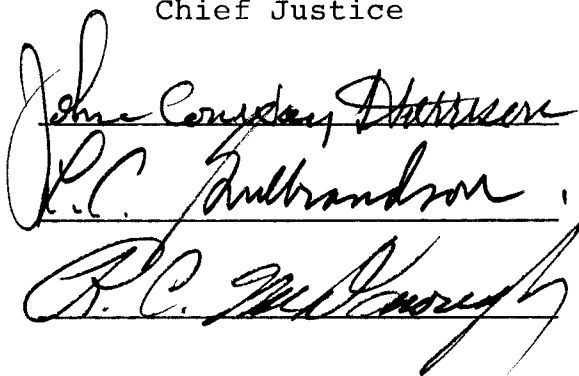 Chief Justice
John Conway Harrison
L.C. Gulbrandson
R. C. McDonough